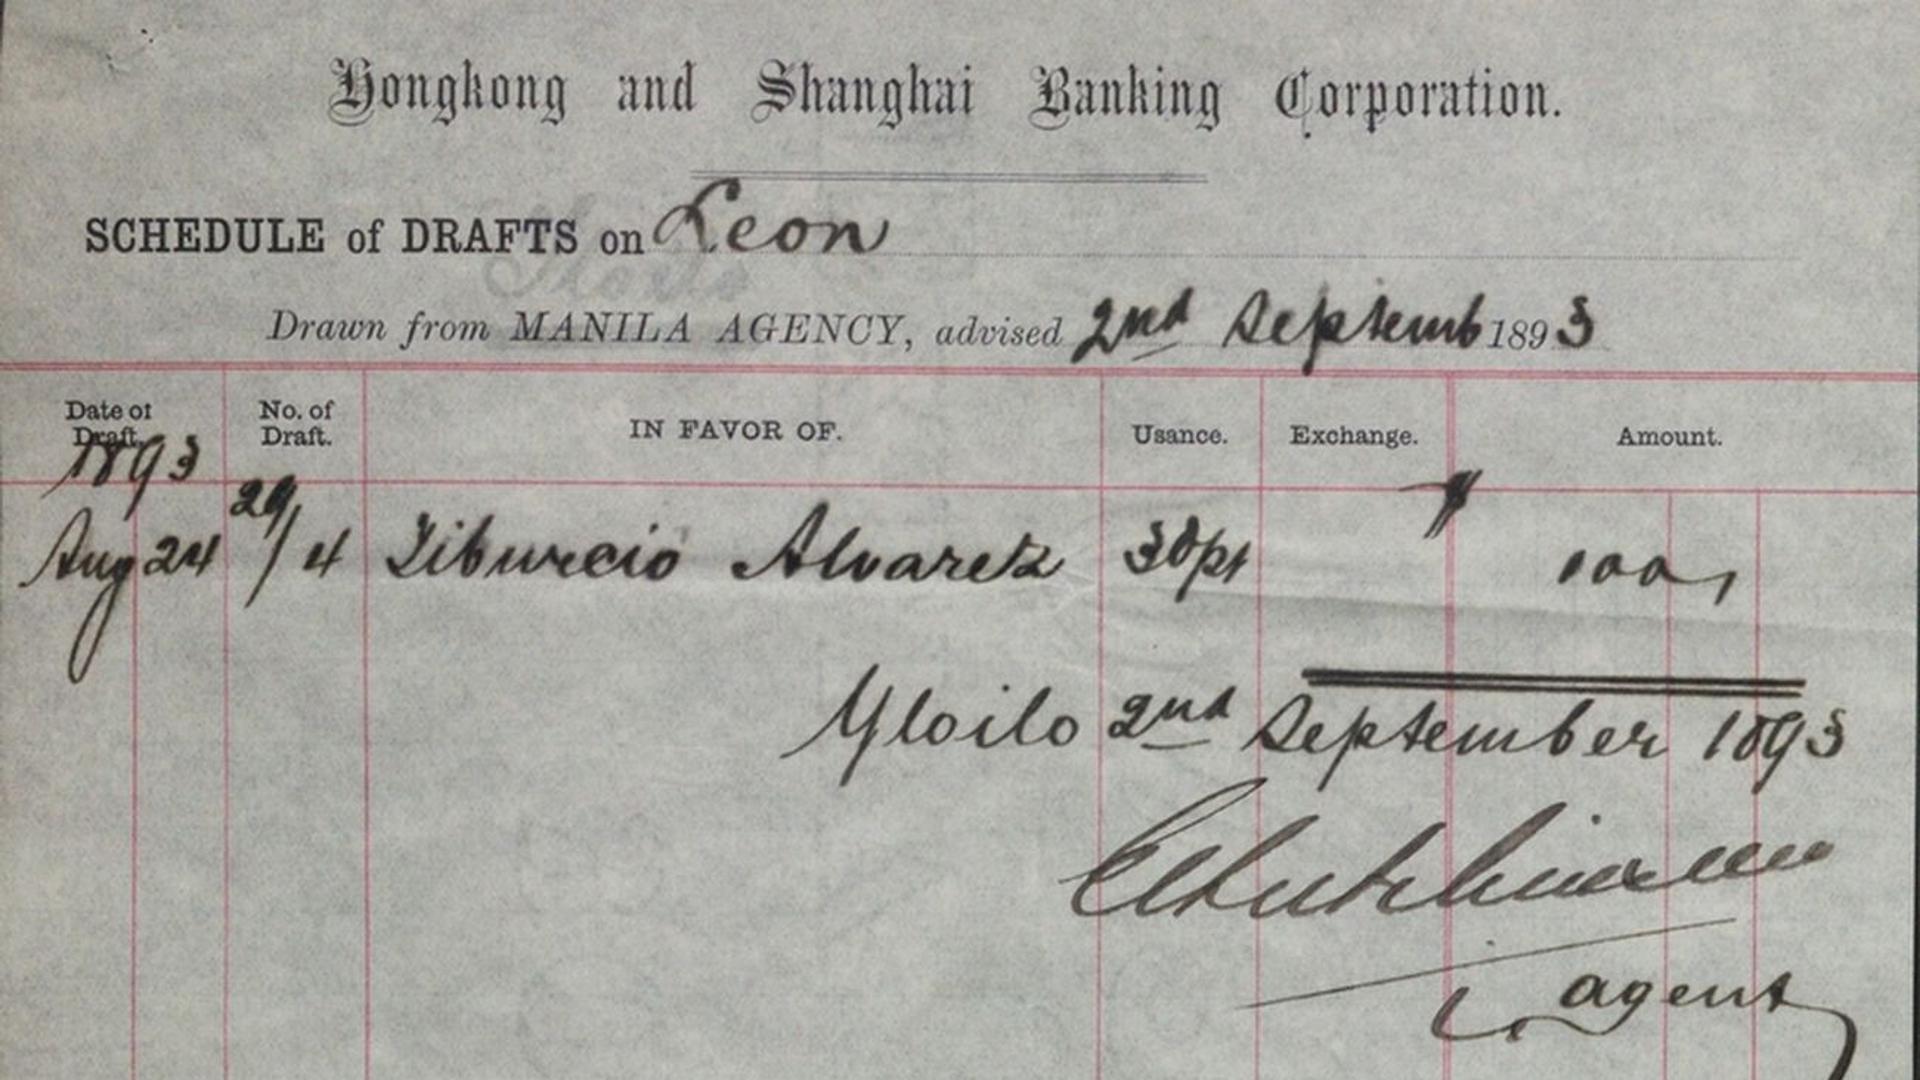 Hongkong and Shanghai Banking Corporation.
SCHEDULE of DRAFTS on Leon
Drawn from MANILA AGENCY, advised 2nd Septemb 1893
Date of Draft. No. of Draft. IN FAVOR OF. Usance. Exchange. Amount.
1893
Aug 24 29/4 Tiburcio Alvarez 30 pt $ 100,
Yloilo 2nd September 1893
agent